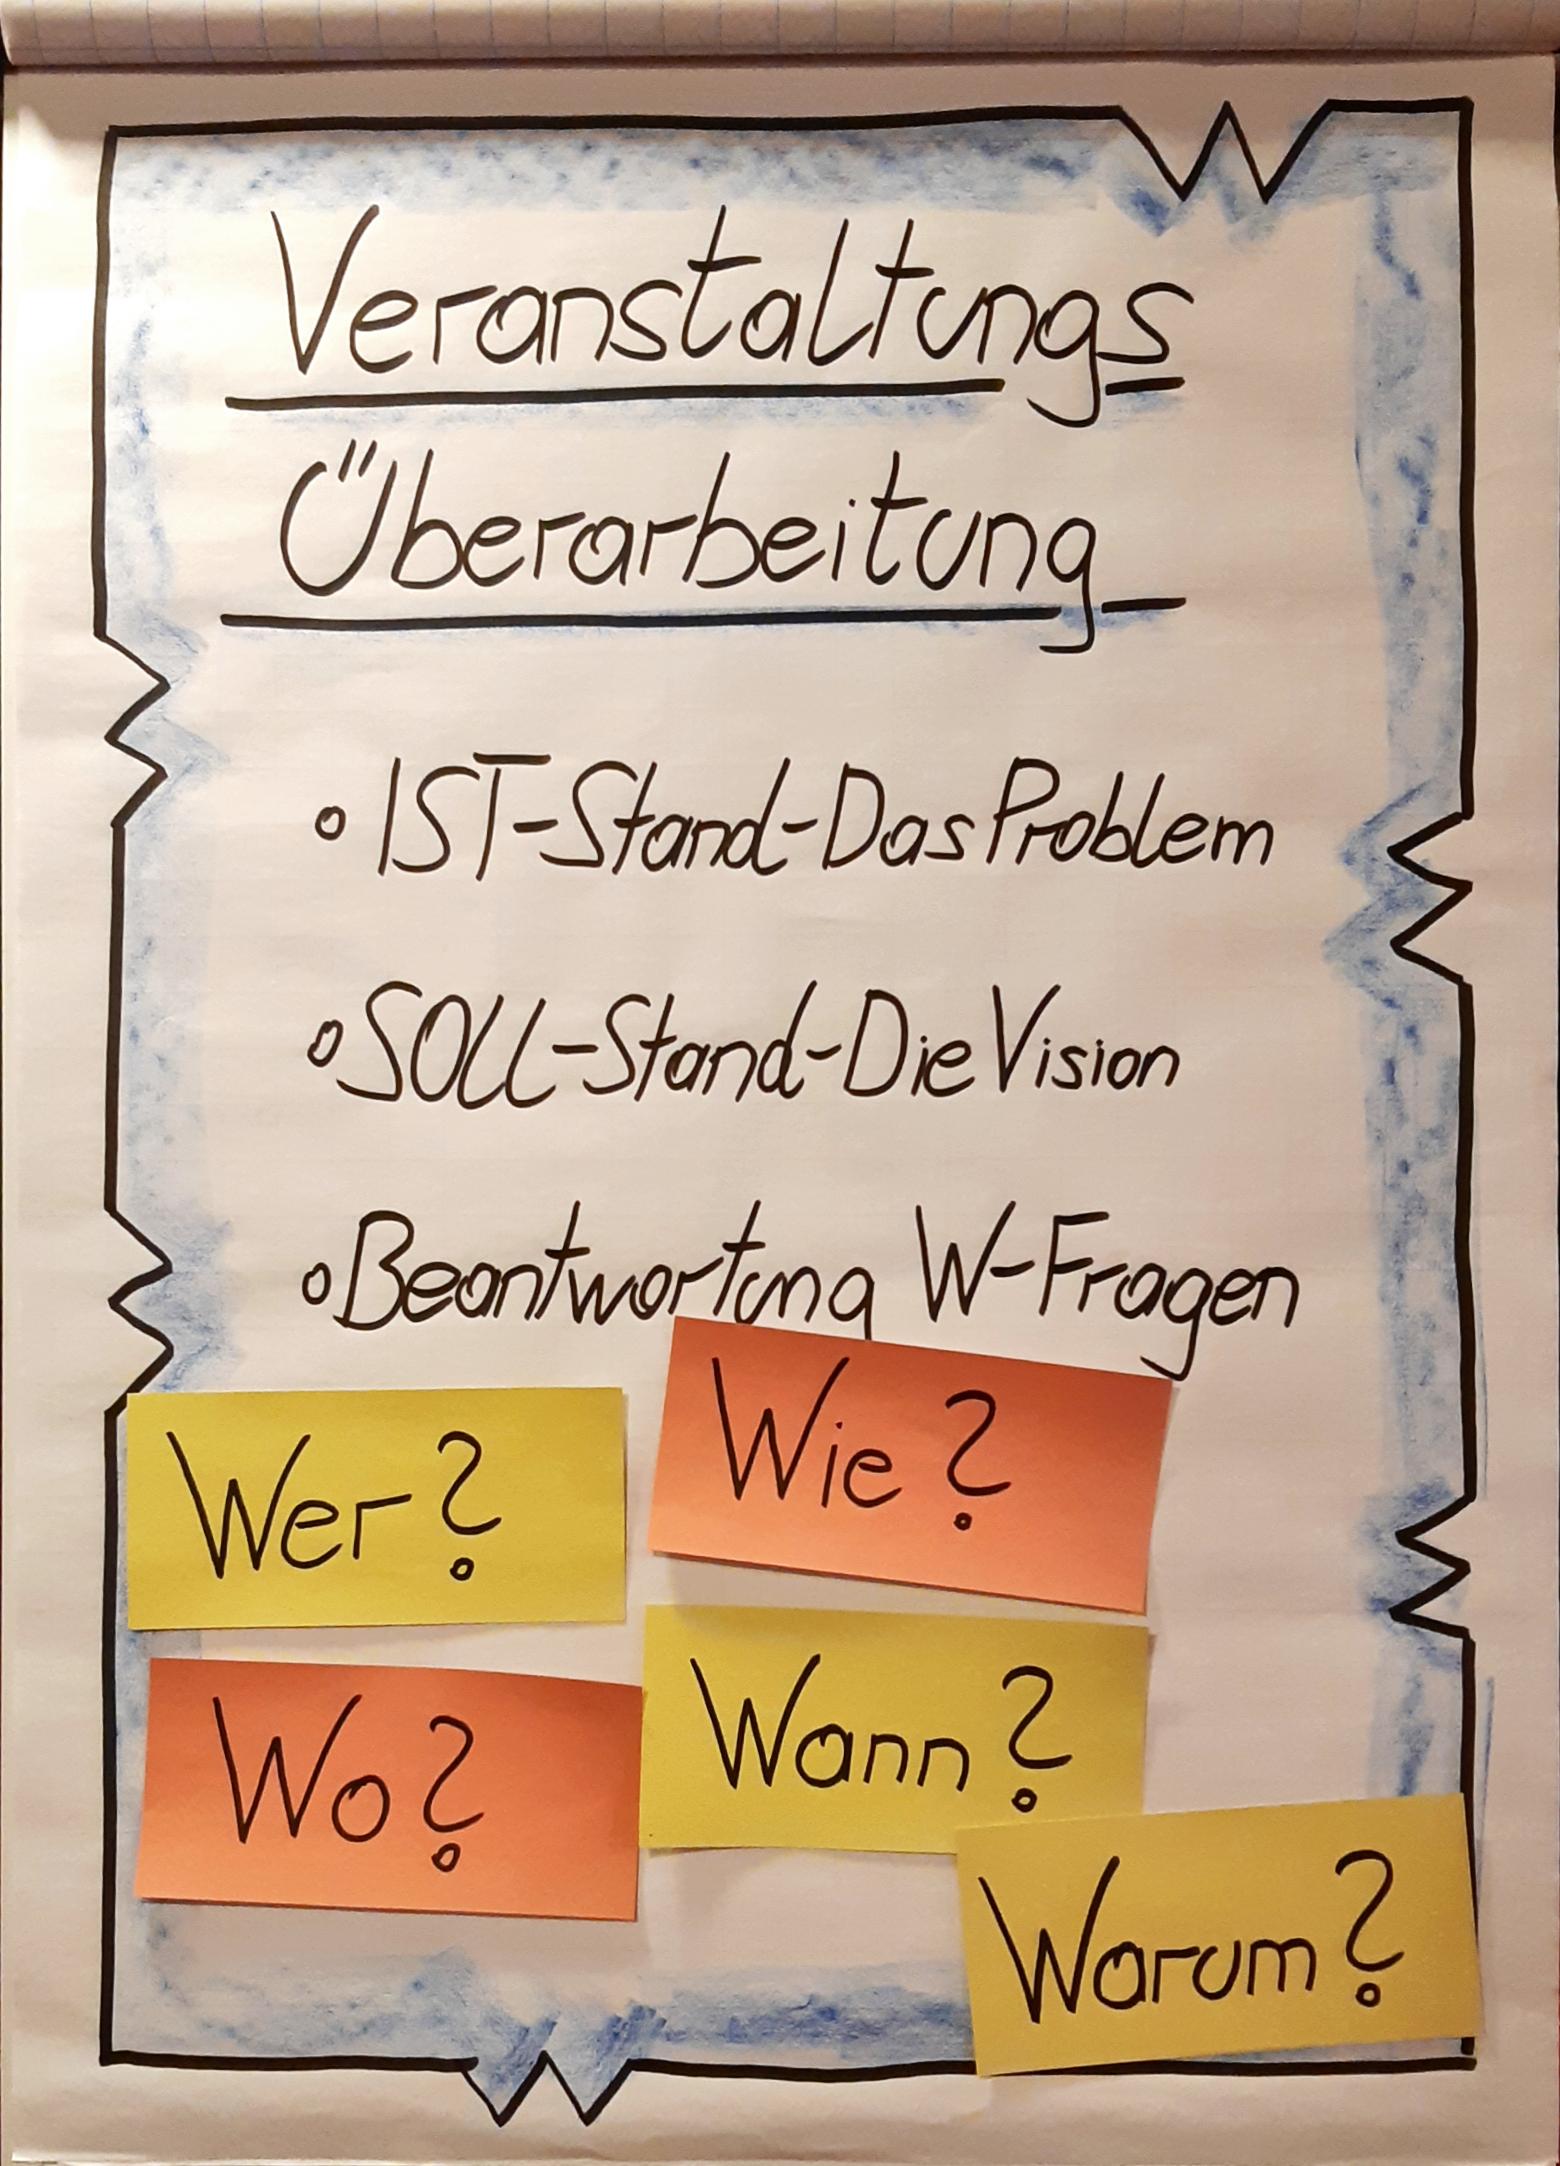 Veranstaltungs
Überarbeitung
• IST-Stand-Das Problem
• SOLL-Stand-Die Vision
• Beantwortung W-Fragen
Wer?
Wie?
Wo?
Wann?
Warum?